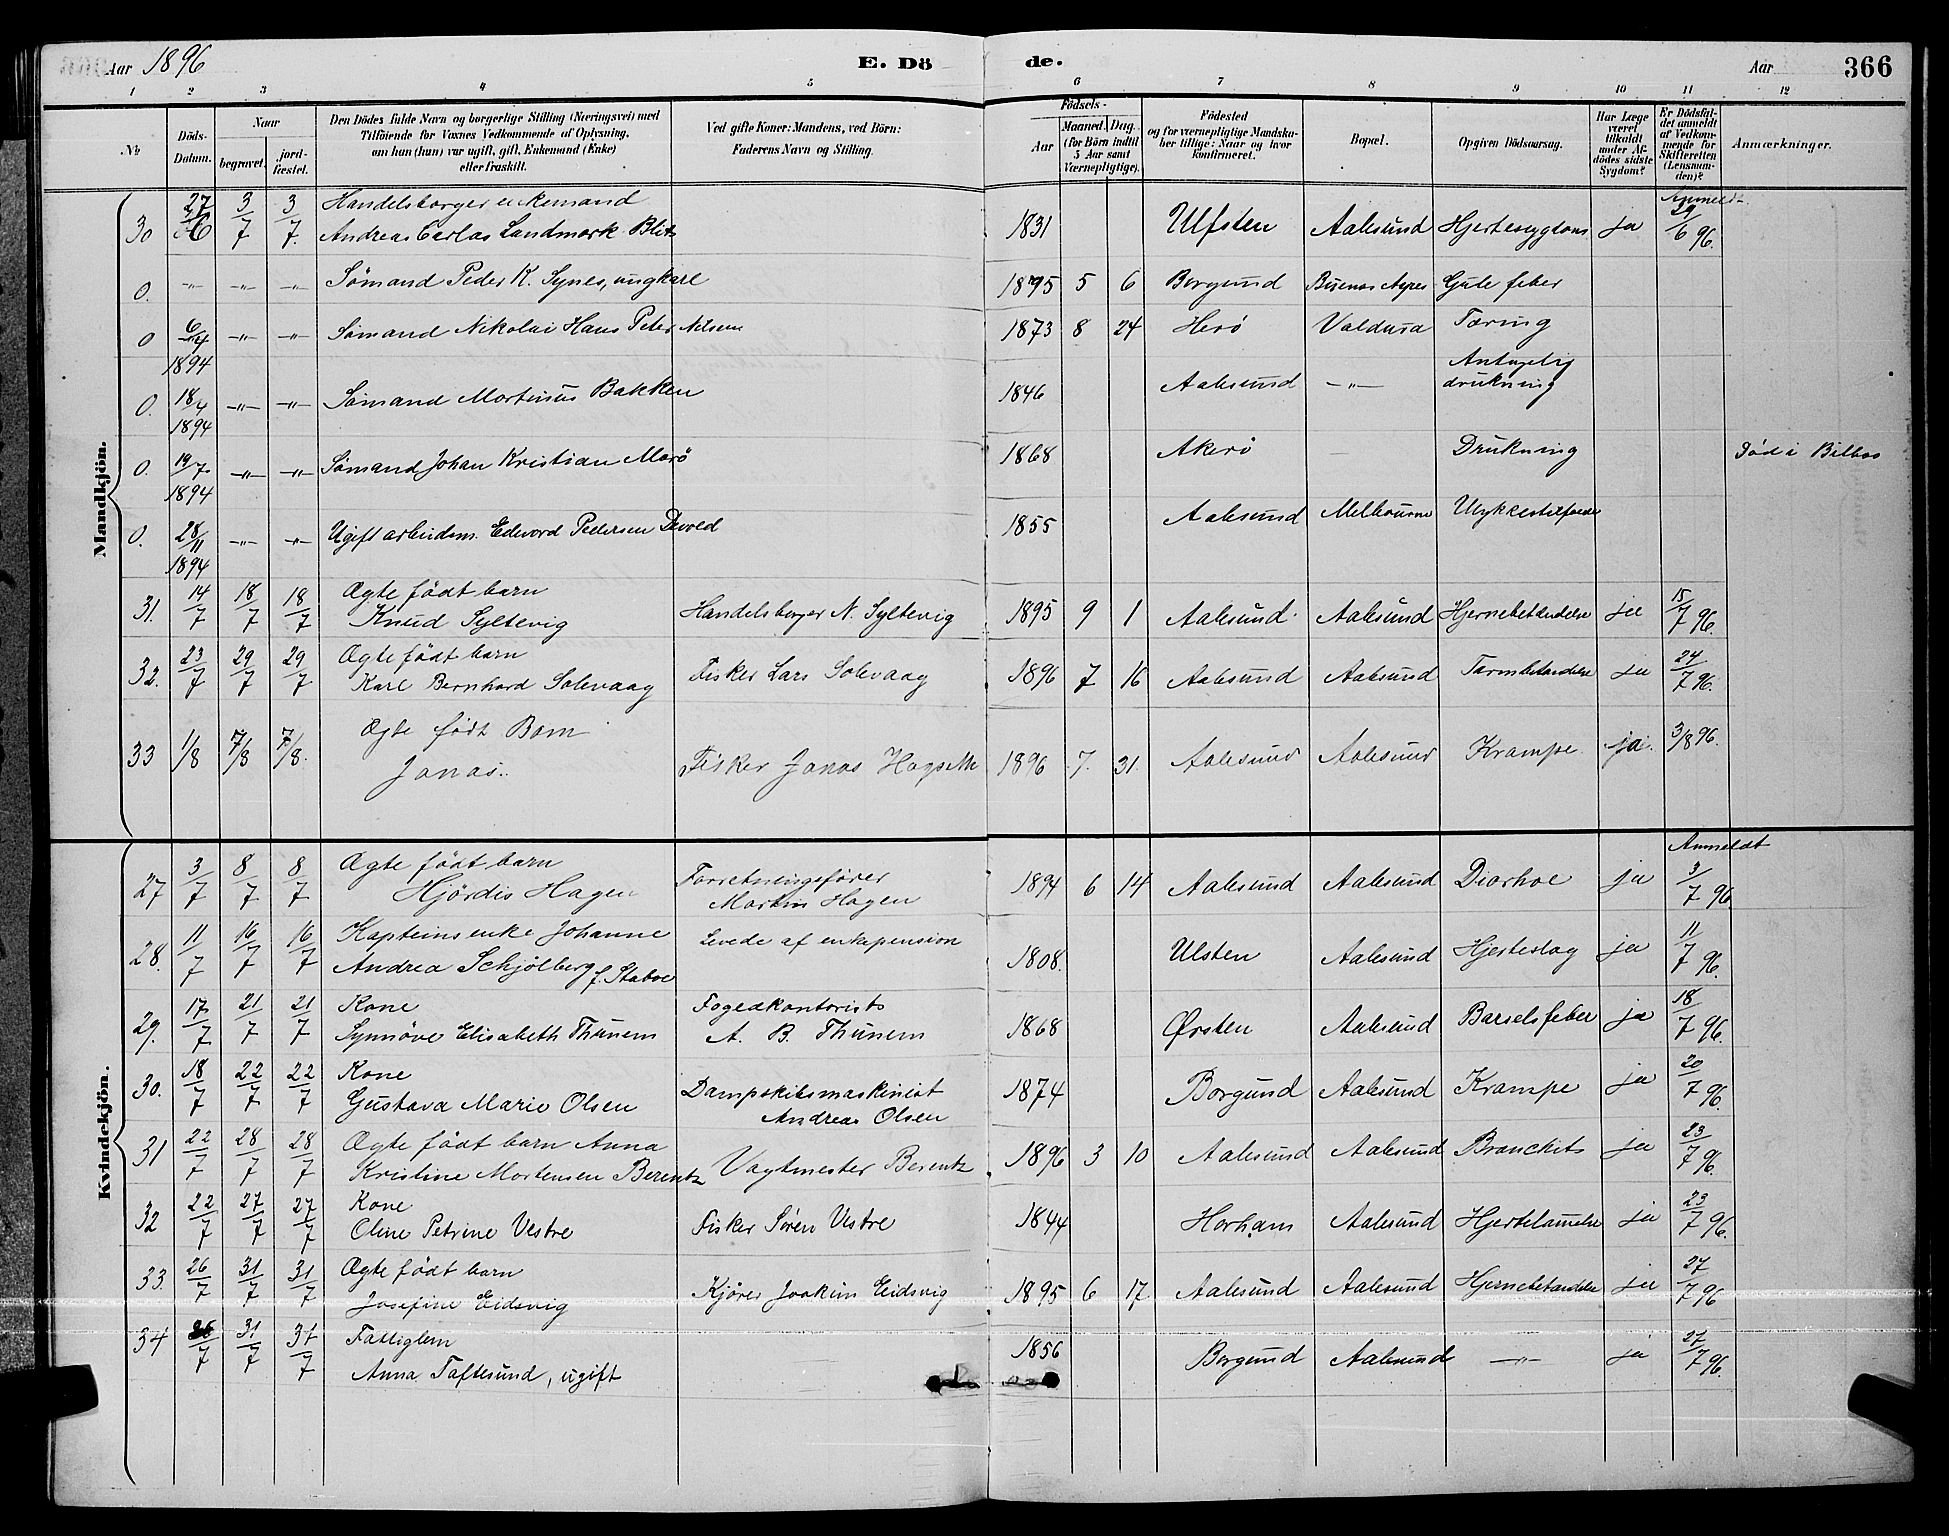 Aar 1896 E. Dö de. Aar 366
1 2 3 4 5 6 7 8 9 10 11 12
No
Döds-Datum.
Naar
begravet.
jord-fæstet.
Den Dödes fulde Navn og borgerlige Stilling (Næringsvei) med
Tilföiende for Voxnes Vedkommende af Oplysning,
om han (hun) var ugift, gift, Enkemand (Enke)
eller fraskilt.
Ved gifte Koner: Mandens, ved Börn:
Faderens Navn og Stilling.
Födsels-
Aar
Maaned. Dag.
(for Börn indtil
5 Aar samt
Værnepligtige).
Födested
og for værnepligtige Mandska-
ber tillige: Naar og hvor
konfirmeret.
Bopæl.
Opgiven Dödsaarsag.
Har Læge
været
tilkaldt
under Af-
dödes sidste
Sygdom?
Er Dödsfal-
det anmeldt
af Vedkom-
mende for
Skifteretten
(Lensman-
den)?
Anmærkninger.
Mandkjön.
Handelsborger enkemand Anmeldt
30 27/6 3/7 3/7. Andreas Carlas Landmark Blix 1831 Ulfsten Aalesund Hjertesygdom ja 29/6 96.
0. -"- -"- -"- Sömand Peder K. Synes, ungkarl 1895 5 6 Borgund Buenos Ayres Gule feber
0 6/4 1894 -"- -"- Sömand Nikolai Hans Peter Nilsen 1873 8 24 Herö Taring
0. 18/4 1894 -"- -"- Sömand Martinus Bakken 1846 Aalesund -"- Antagelig drukning
0. 19/7 1894 -"- -"- Sömand Johan Kristian Morö 1868 Akerö — Drukning Död i Bilbao
0. 28/11 1894 -"- -"- Ugift arbeidsm. Edvard Pedersen Devold 1855 Aalesund Melbourne Ulykkestilfælde
31. 14/7 18/7 18/7 Ægte födt barn
Knud Syltevig Handelsborger N. Syltevig 1895 9 1 Aalesund Aalesund Hjernebetændelse ja 15/7 96.
32. 23/7 29/7 29/7 Ægte födt barn
Karl Bernhard Solevaag Fisker Lars Solevaag 1896 7 16 Aalesund Aalesund Tarmbetændelse ja 24/7 96.
33 1/8 7/8 7/8. Ægte födt Barn
Jonas. Fisker Jonas Hagseth 1896 7. 31. Aalesund Aalesund Krampe ja. 3/8 96.
Kvindekjön.
Anmeldt
27 3/7 8/7 8/7 Ægte födt barn
Hjördis Hagen Forretningsförer
Martin Hagen 1894 6 14 Aalesund Aalesund Diarhoe ja 3/7 96.
28. 11/7 16/7 16/7 Kapteins enke Johanne
Andrea Schjölberg f. Staboe Levede af enkepension 1808. Ulsten Aalesund Hjerteslag ja 11/7 96.
29. 17/7 21/7 21/7 Kone
Synnöve Elisabeth Thunem Fogedkontorist
A. B. Thunem 1868 Ørsten Aalesund Barselsfeber ja 18/7 96.
30. 18/7 22/7 22/7 Kone
Gustava Marie Olsen Dampskibsmaskinist
Andreas Olsen 1874 Borgund Aalesund Krampe ja 20/7 96.
31 22/7 28/7 28/7 Ægte födt barn Anna
Kristine Mortensen Berentz Vagtmester Berentz 1896 3 10 Aalesund Aalesund Bronchits ja 23/7 96.
32 22/7 27/7 27/7 Kone
Oline Petrine Vestre Fisker Sören Vestre 1844 Horham Aalesund Hjertelamelse ja 23/7 96.
33. 26/7 31/7 31/7 Ægte födt barn
Josefine Eidsvig Kjörer Joakim Eidsvig 1895 6 17. Aalesund Aalesund Hjernebetændelse ja 27/7 96
34 26/7 31/7 31/7 Fattiglem
Anna Taftesund, ugift 1856 Borgund Aalesund -"- ja 27/7 96.